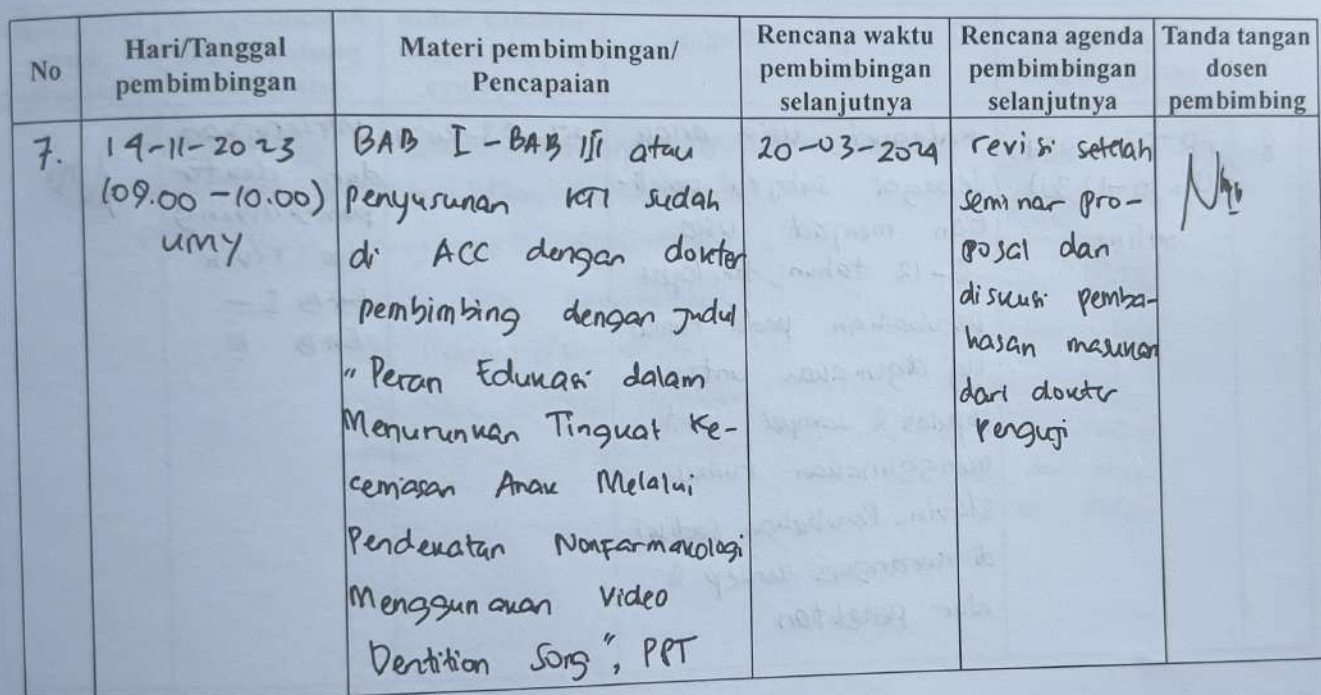 No
Hari/Tanggal
pembimbingan
Materi pembimbingan/
Pencapaian
Rencana waktu
pembimbingan
selanjutnya
Rencana agenda
pembimbingan
selanjutnya
Tanda tangan
dosen
pembimbing
7.
14-11-2023
(09.00 - 10.00)
UMY
BAB I - BAB III atau
Penyusunan KTI sudah
di ACC dengan dokter
pembimbing dengan Judul
"Peran Edukasi dalam
Menurunkan Tingkat Ke-
cemasan Anak Melalui
Pendekatan Nonfarmakologi
Menggunakan Video
Dentition Song", PPT
20-03-2024
revisi setelah
seminar pro-
posal dan
diskusi pemba-
hasan masukan
dari dokter
penguji